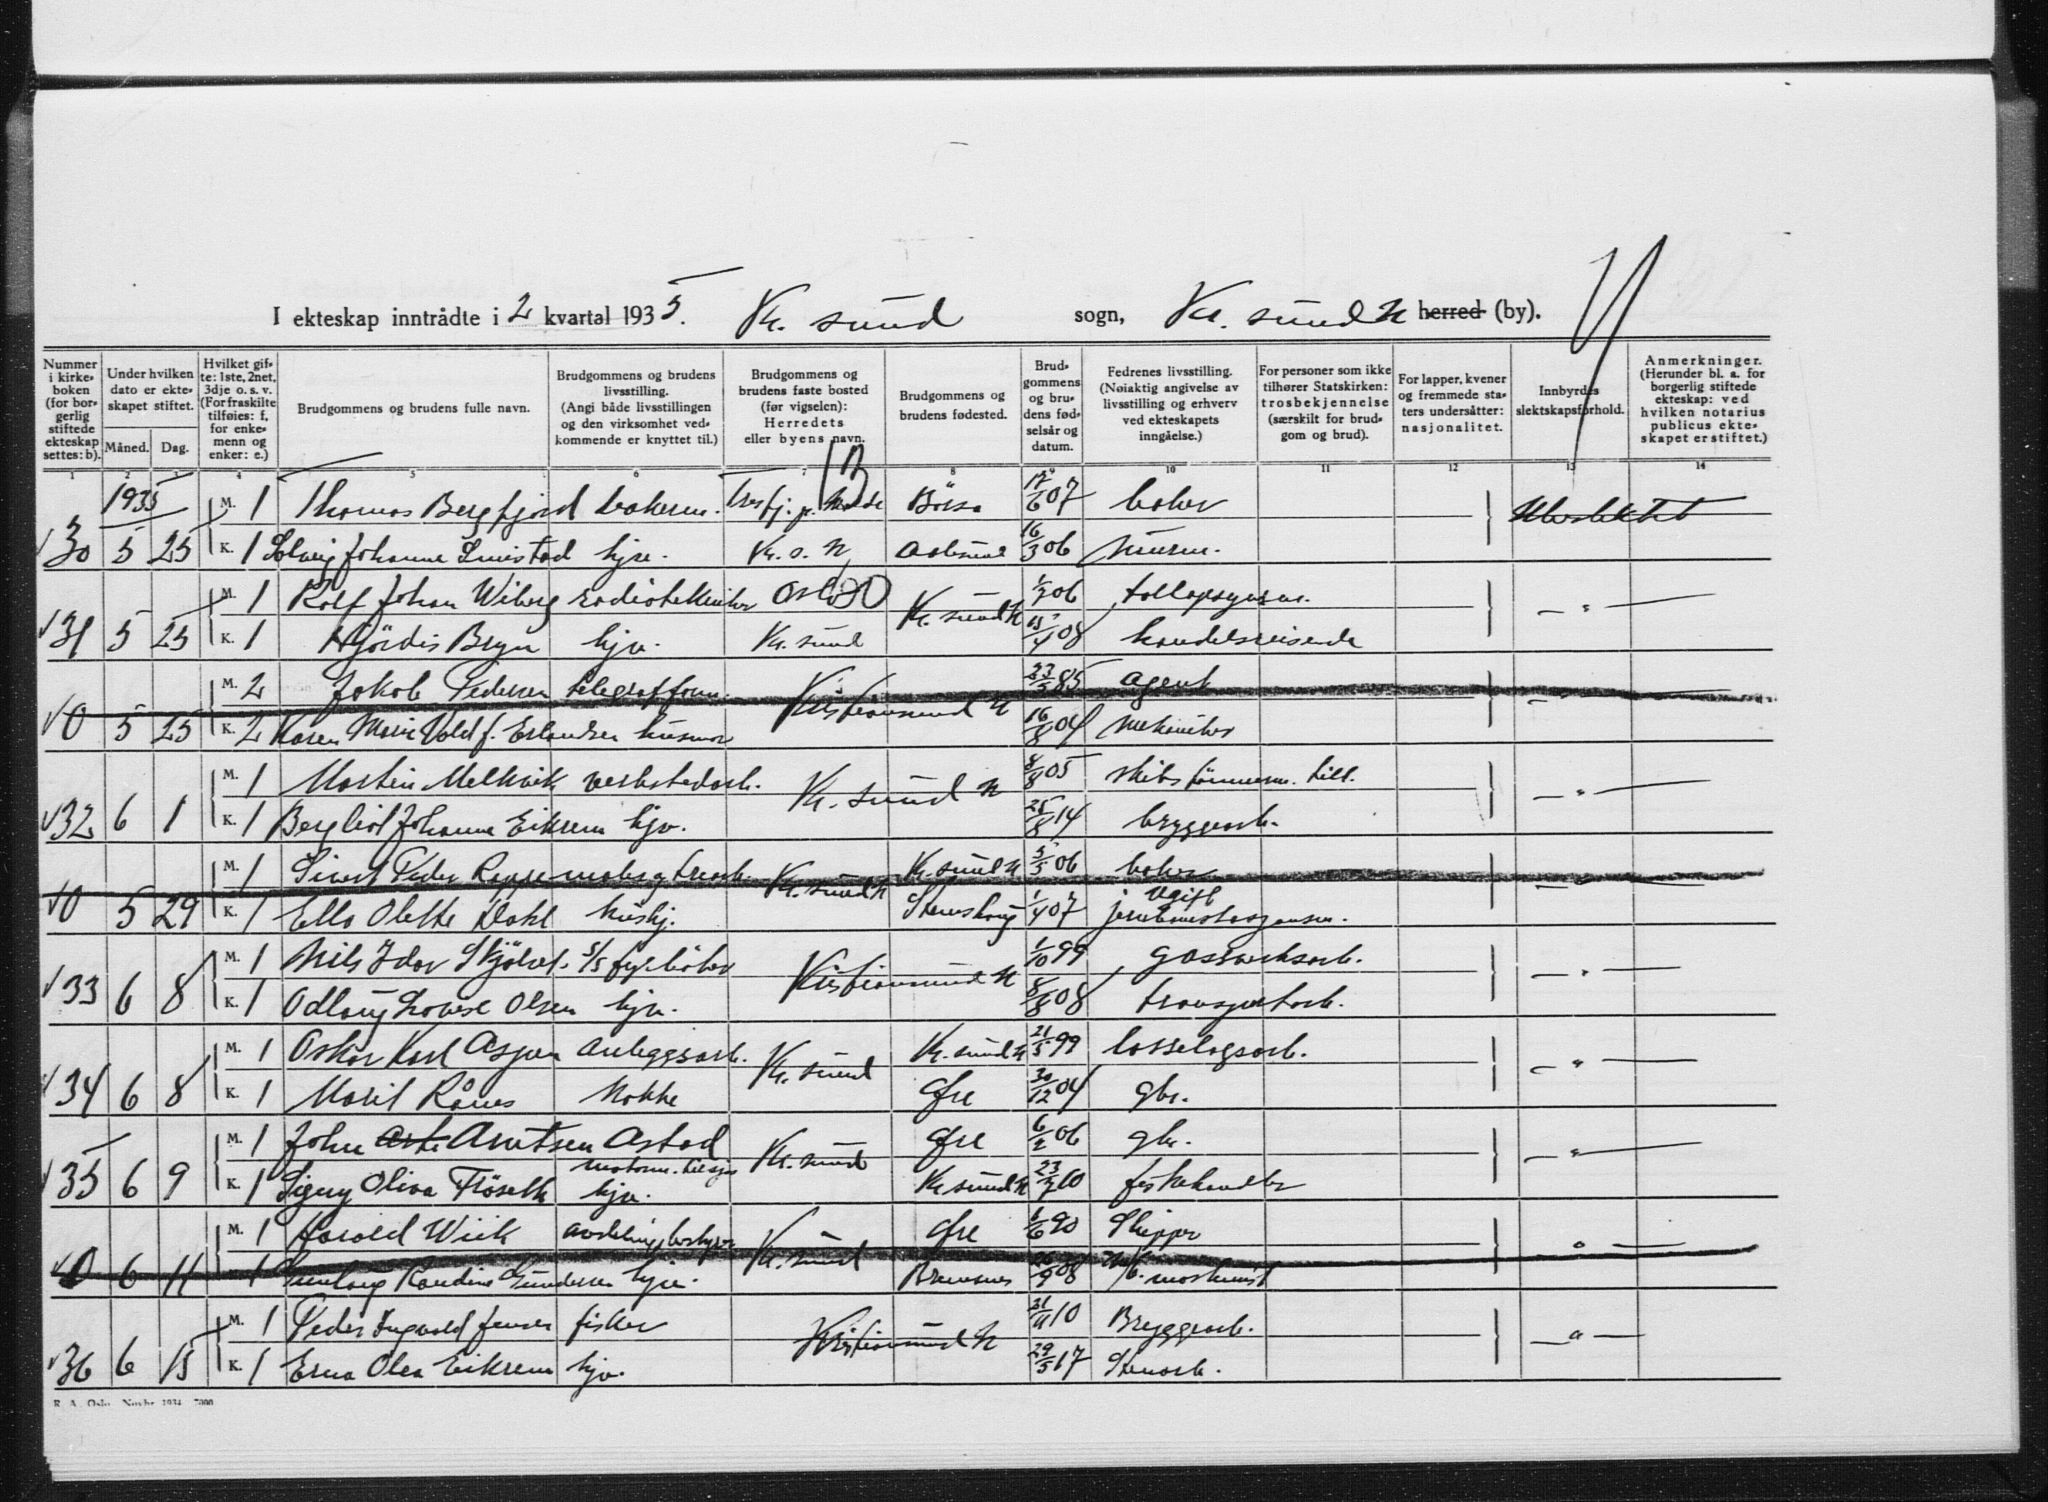 I ekteskap inntrådte i 2 kvartal 1935. Kr. sund sogn, Kr. sund N herred (by).
Nummer i kirkeboken (for borgerlig stiftede ekteskap settes: b).
Under hvilken dato er ekteskapet stiftet.
Måned. Dag.
Hvilket gifte: 1ste, 2net, 3dje o. s. v. (For fraskilte tilføies: f, for enkemenn og enker: e.)
Brudgommens og brudens fulle navn.
Brudgommens og brudens livsstilling. (Angi både livsstillingen og den virksomhet vedkommende er knyttet til.)
Brudgommens og brudens faste bosted (før vigselen): Herredets eller byens navn.
Brudgommens og brudens fødested.
Brudgommens og brudens fødselsår og datum.
Fedrenes livsstilling. (Nøiaktig angivelse av livsstilling og erhverv ved ekteskapets inngåelse.)
For personer som ikke tilhører Statskirken: trosbekjennelse (særskilt for brudgom og brud).
For lapper, kvener og fremmede staters undersåtter: nasjonalitet.
Innbyrdes slektskapsforhold.
Anmerkninger. (Herunder bl. a. for borgerlig stiftede ekteskap: ved hvilken notarius publicus ekteskapet er stiftet.)
1 2 3 4 5 6 7 8 9 10 11 12 13 14
1935
M. 1 Thomas Bergfjord bakerm. Børsa 17/6 07 baker Ubeslektet
30 5 25 K. 1 Solveig Johanne Smistad hjv. Kr. s. N Aalesund 16/3 06 murm.
M. 1 Rolf Johan Wiberg radiotekniker Oslo Kr. sund N 06 tollopsynsm. — " —
31 5 25 K. 1 Hjördis Bryn hjv. Kr. sund 15/4 08 handelsreisende
M. 2 Jakob Pedersen telegrafform. Kristiansund N 23/5 85 agent — " —
0 5 25 K. 2 Karen Marie Vold f. Erlandsen husmor 16/8 04 mekaniker
M. 1 Martin Melkvik verkstedarb. Kr. sund N 8/8 05 skibstømmerm. — " —
32 6 1 K. 1 Bergliot Johanne Eikrem hjv. 25/8 14 bryggearb.
M. 1 Sivert Peder Kr. sund N Kr. sund N 5/5 06 baker — " —
0 5 29 K. 1 Ella Olette Dahl hushj. 1/4 07 Ugift
M. 1 Nils Idar fyrbøter Kristiansund N 1/10 99 gassverksarb. — " —
33 6 8 K. 1 Odlaug Lovise Olsen hjv. 8/8 08 transportarb.
M. 1 Oskar Karl Aspen anleggsarb. Kr. sund Kr. sund N 21/5 99 — " —
34 6 8 K. 1 Marit Rånes kokke Gfre 30/12 04 gbr.
M. 1 John Arntsen Astad Kr. sund Gfre 6/2 06 gbr. — " —
35 6 9 K. 1 Signy Oliva Flöseth hjv. Kr. sund N 23/7 10 fiskehandler
M. 1 Harald Wiik avdelingsbestyrer Kr. sund Gfre 1/6 90 Skipper — " —
0 6 11 1 Gunlaug Randine Gundersen hjv. Bremsnes 26/9 08 maskinist
M. 1 Peder Ingvald Jensen fisker Kristiansund N 10 Bryggearb. — " —
36 6 15 K. 1 Erna Olea Eikrem hjv. 29/5 17 Stenarb.
R. A. Oslo. Novbr. 1934. 7000